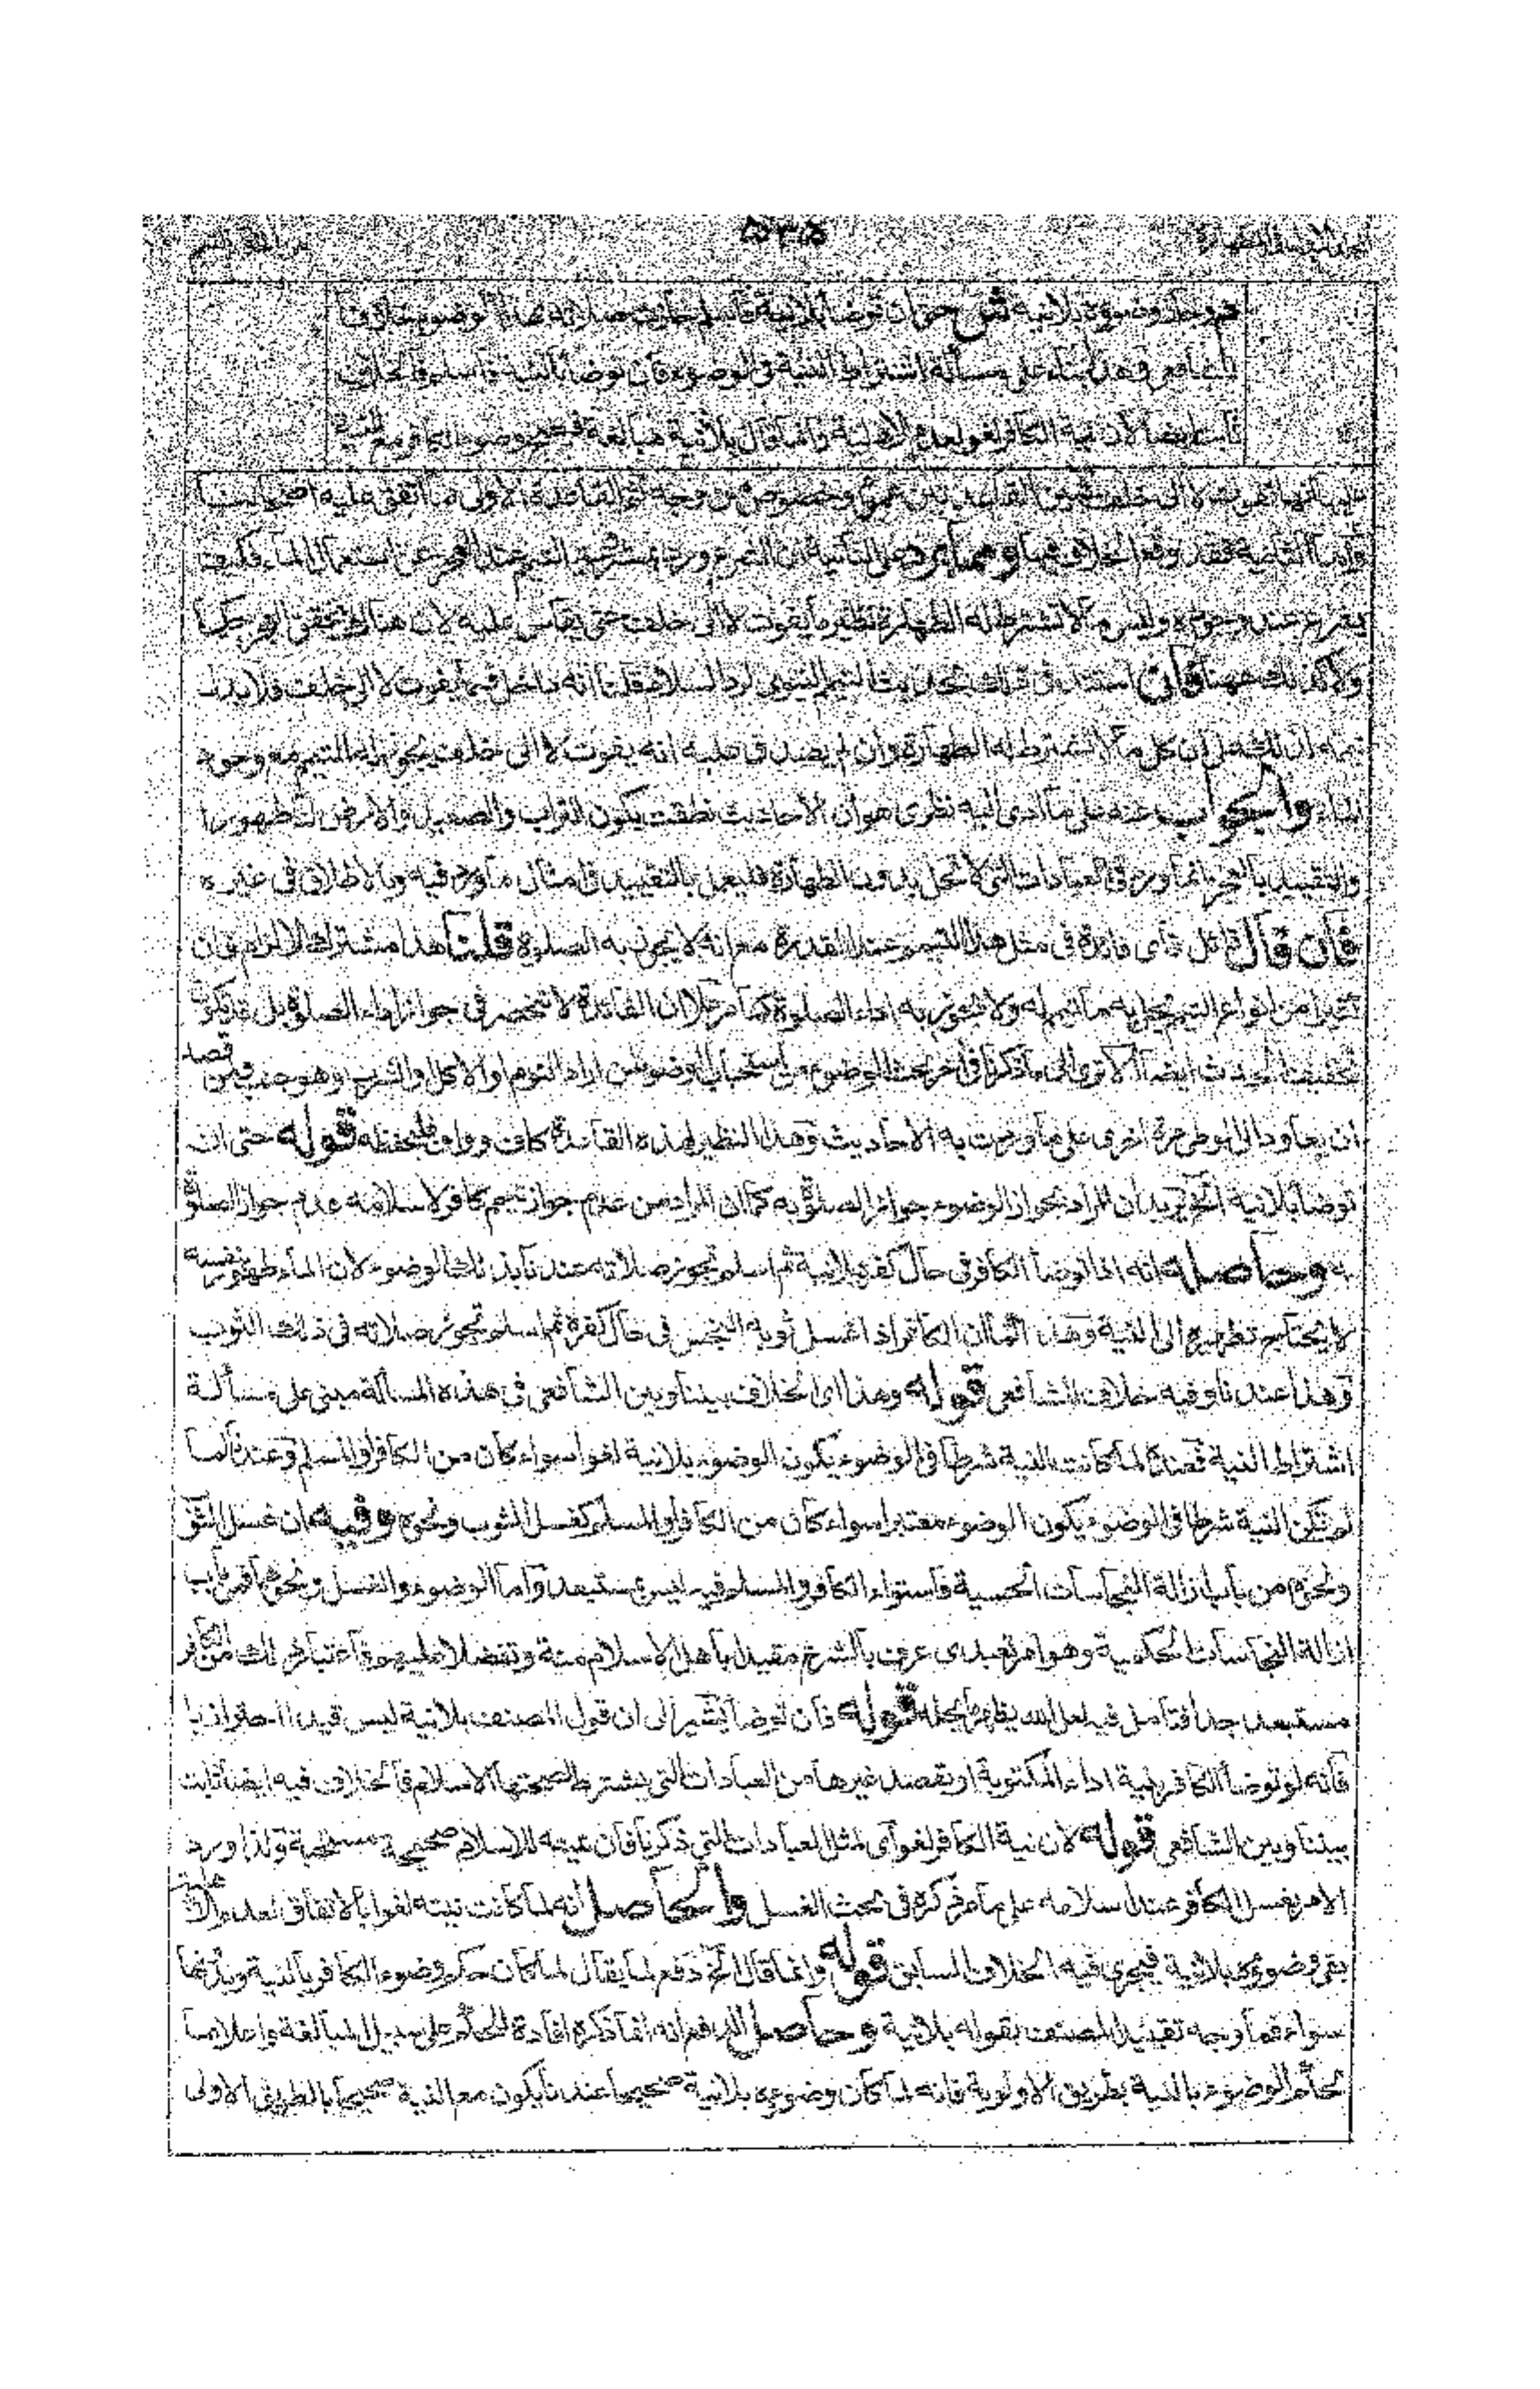 ۵۳۵
وجاز وضوءه بلانية ش حتى ان توضأ بلانية فاسلم جازت صلاته بهذا الوضوء خلافا
للشافعي وهذا بناء على مسألة اشتراط النية في الوضوء فان توضأ بالنية فاسلم فالخلاف
ثابت ايضا لان نية الكافر لغو لعدم الاهلية وانما قال بلانية مبالغة فيصح وضوء الكافر مع النية
لا الى خلف فبين القاعدتين عموم وخصوص من وجه ثم القاعدة الاولى مما اتفق عليه اصحابنا
واما الثانية فقد وقع الخلاف فيها ومما يرد على الثانية ان الشرع ورد بشرعية التيمم عند العجز عن استعمال الماء فكيف
يشرع عند وجوده وليس ما لا تشترط له الطهارة نظير ما يفوت لا الى خلف حتى يقاس عليه لان هناك تحقق العجز حكما
ولا كذلك ههنا وان استند في ذلك بحديث التيمم النبوي لرد السلام قلنا انه داخل فيما يفوت لا الى خلف فلا يدل
ان كل ما لا تشترط له الطهارة وان لم يصدق عليه انه يفوت لا الى خلف يجوز له التيمم مع وجود
الماء والجواب عنه على ما ادى اليه نظري هو ان الاحاديث نطقت بكون التراب والصعيد والارض لنا طهورا
والتقييد بالعجز انما ورد في العبادات التي لا تحل بدون الطهارة فليعمل بالتقييد في امثال ما ورد فيه وبالاطلاق في غيره
فان قال قائل فاي فائدة في مثل هذا التيمم عند القدرة مع انه لا يجوز به الصلوة قلنا هذا مشترك الالزام فان
كثيرا من انواع التيمم يحل به ما تيمم له ولا يجوز به اداء الصلوة كما مر علا ان الفائدة لا تنحصر في جواز اداء الصلوة بل قد تكون
تخفيف الحدث ايضا الا ترى الى ما ذكرنا في اخر بحث الوضوء من استحباب الوضوء لمن اراد النوم او الاكل والشرب وهو جنب ولمن قصد
ان يعاود الى الوطي مرة اخرى على ما وردت به الاحاديث وهذا النظير لهذه الفائدة كاف وواف فليحفظه قوله حتى ان
توضأ بلانية الخ يريد ان المراد بجواز الوضوء جواز الصلوة به كما ان المراد من عدم جواز تيمم كافر لاسلامه عدم جواز الصلوة
به وحاصله انه اذا توضأ الكافر في حال كفره بلانية ثم اسلم تجوز صلاته عندنا بذلك الوضوء لان الماء طهور بنفسه
لا يحتاج تطهيره الى النية وهذا كما ان الكافر اذا غسل ثوبه النجس في حال كفره ثم اسلم تجوز صلاته في ذلك الثوب
وهذا عندنا وفيه خلاف الشافعي قوله وهذا اى الخلاف بيننا وبين الشافعي في هذه المسألة مبني على مسألة
اشتراط النية فعنده لما كانت النية شرطا في الوضوء يكون الوضوء بلانية لغوا سواء كان من الكافر او المسلم وعندنا لما
لم تكن النية شرطا في الوضوء يكون الوضوء معتبرا سواء كان من الكافر او المسلم كغسل الثوب ونحوه وفيه ان غسل الثوب
ونحوه من باب ازالة النجاسات الحسية فاستواء الكافر والمسلم فيه ليس بمستبعد واما الوضوء والغسل ونحوهما فمن باب
ازالة النجاسات الحكمية وهو امر تعبدى عرف بالشرع مقيدا باهل الاسلام منة وتفضلا عليهم فاعتبار ذلك من الكافر
مستبعد جدا فتامل فيه لعل الله يظهر محله قوله فان توضأ يشير الى ان قول المصنف بلانية ليس قيدا احترازيا
فانه لو توضأ الكافر بنية اداء المكتوبة او بقصد غيرها من العبادات التي يشترط لصحتها الاسلام فالخلاف فيه ايضا ثابت
بيننا وبين الشافعي قوله لان نية الكافر لغو اى لمثل العبادات التي ذكرنا فان نيته للاسلام صحيحة مستحبة ولذا ورد
الامر بغسل الكافر عند اسلامه على ما مر ذكره في بحث الغسل والحاصل انه لما كانت نيته لغوا بالاتفاق لعدم
بقي وضوءه بلانية فيجري فيه الخلاف السابق قوله وانما قال الخ دفع لما يقال لما كان حكم وضوء الكافر بالنية وبدونها
سواء فما وجه تقييد المصنف بقوله بلانية وحاصل الدفع انه انما ذكره افادة للحكم على سبيل المبالغة واعلاما
لحكم الوضوء بالنية بطريق الاولوية فانه لما كان وضوءه بلانية صحيحا عندنا يكون مع النية صحيحا بالطريق الاولى